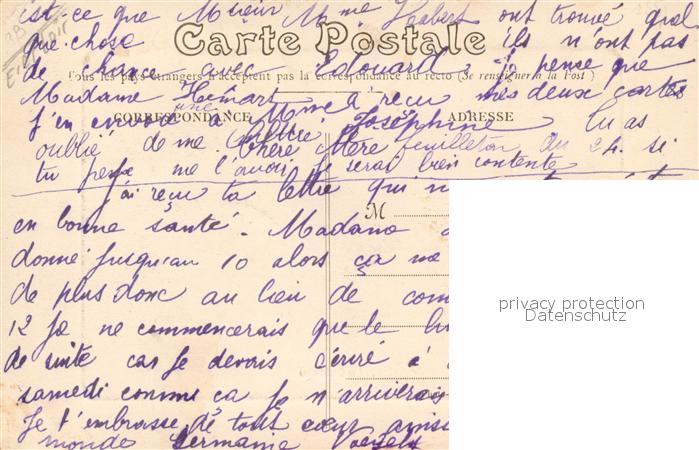 est-ce que Msieur Mme Hébert ont trouvé quel
que chose
Carte Postale
ils n'ont pas
de chance avec Edouard. je pense que
Tous les pays étrangers n'acceptent pas la correspondance au recto (Se renseigner à la Post)
Madame Hemart a reçu mes deux cartes
CORRESPONDANCE
ADRESSE
j'en envoie une à Mme Joséphine tu as
oublié de me feuilleton du 24. si
tu peux me l'avoir je serai bien contente
Chère Mère
j'ai reçu ta lettre qui
M
en bonne santé. Madame
donne jusqu'au 10 alors ça me
de plus donc au lieu de com
12 je ne commencerais que le lu
de suite car je devais écrire à
samedi comme ça je n'arriverais
Je t'embrasse de tout cœur ainsi
monde Germaine
privacy protection
Datenschutz